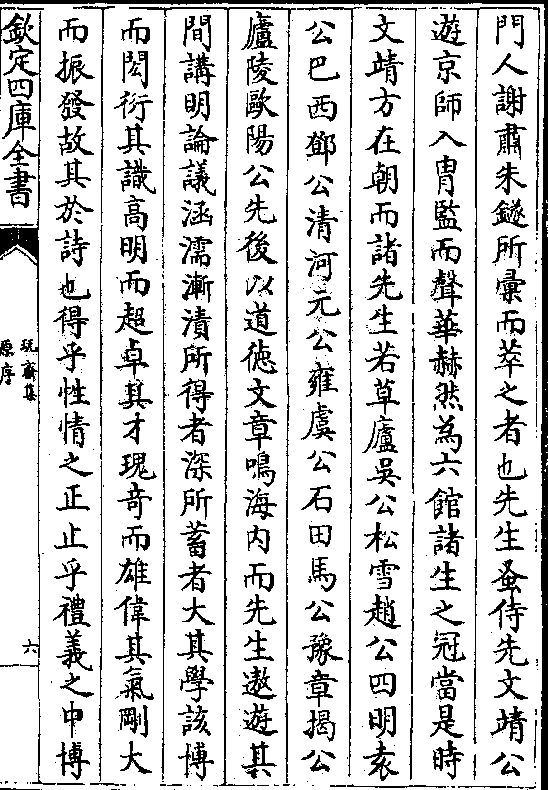 門人謝肅朱鐩所彚而萃之者也先生蚤侍先文靖公
遊京師入胄監而聲華赫然為六館諸生之冠當是時
文靖方在朝而諸先生若草廬吳公松雪趙公四明袁
公巴西鄧公清河元公雍虞公石田馬公豫章揭公
廬陵歐陽公先後以道徳文章鳴海内而先生遨遊其
間講明論議涵濡漸漬所得者深所蓄者大其學該博
而閎衍其識高明而超卓其才瑰竒而雄偉其氣剛大
而振發故其於詩也得乎性情之正止乎禮義之中博
欽定四庫全書
玩齋集
原序
六